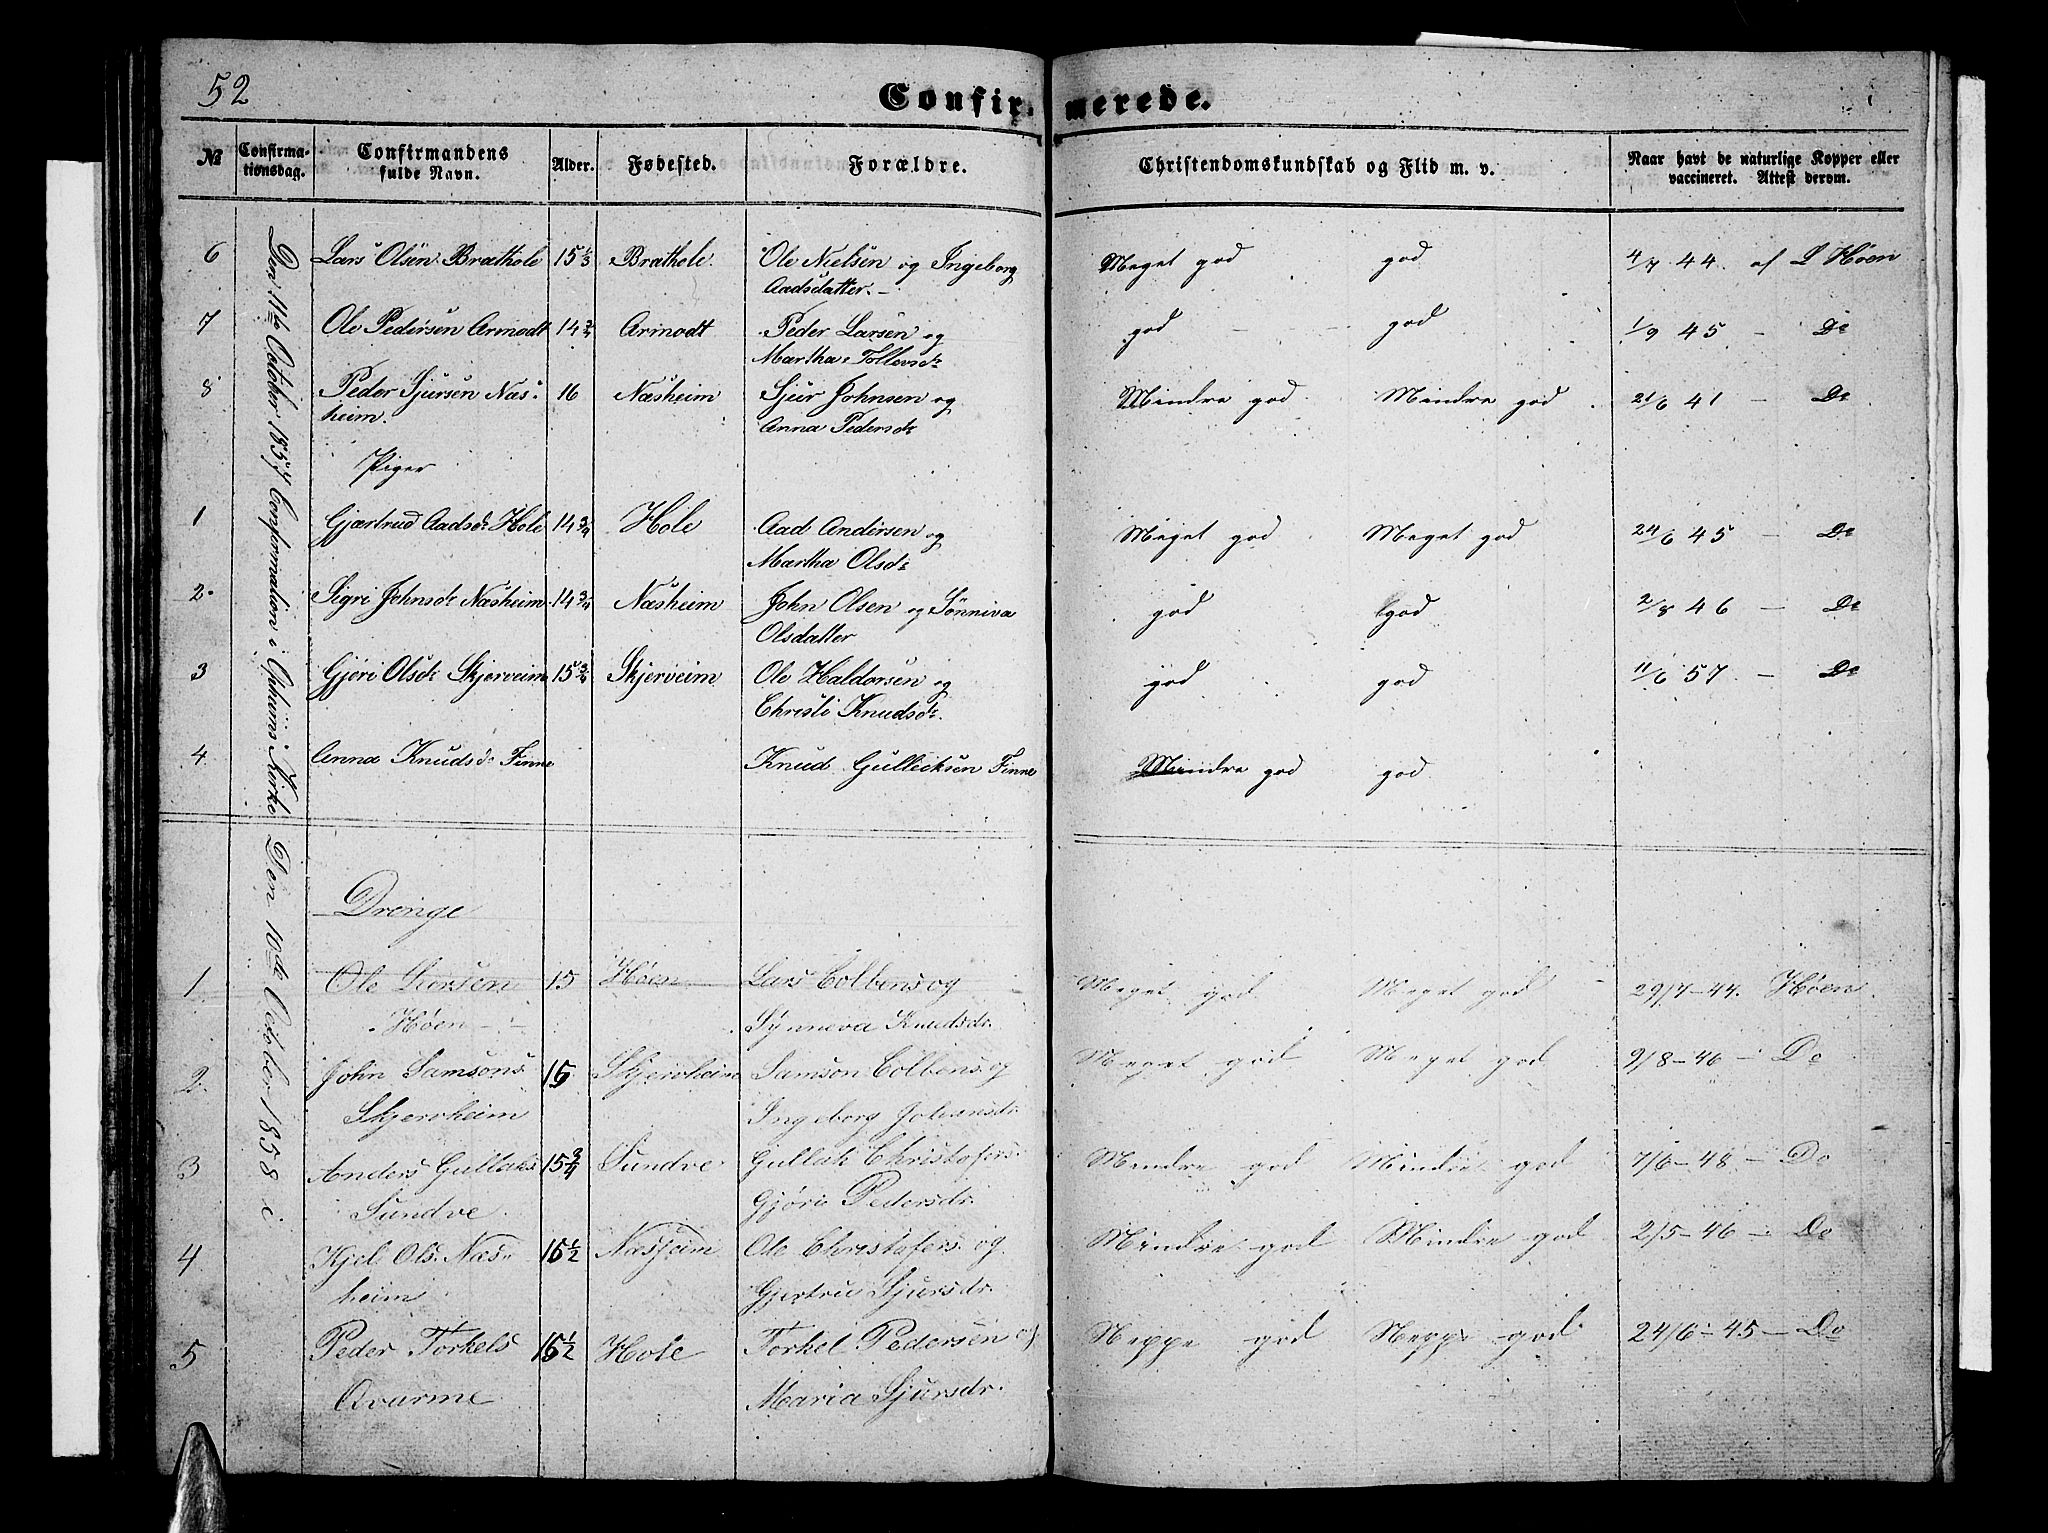 52
Confirmerede.
№ Confirmationsdag. Confirmandens fulde Navn. Alder. Fødested. Forældre. Christendomskundskab og Flid m. v. Naar havt de naturlige Kopper eller vaccineret. Attest derom.
Den 11te October 1857 Confermation i Opheims Kirke
6 Lars Olsen Brathole 15 1/3 Brathole. Ole Nielsen og Ingeborg Meget god god 4/7 44. af L Høen
Aadsdatter.
7 Ole Pedersen Armodt 14 3/4 Armodt Peder Larsen og god god 1/9 45 - Do
Martha Tollevsdr
8 Peder Sjursen Næs= 16 Næsheim Sjur Johnsen og Mindre god Mindre god 21/6 41 - Do
heim. Anna Pedersdr
Piger
1 Gjærtrud Aadsdr Hole 14 3/4 Hole Aad Andersen og Meget god Meget god 24/6 45 - Do
Martha Olsdr
2. Sigri Johnsdr Næsheim 14 3/4 Næsheim John Olsen og Sønniva god god 2/8 46 - Do
Olsdatter
3 Gjøri Olsdr Skjerveim 15 3/4 Skjerveim Ole Haldorsen og god god 11/6 57 - Do
Christi Knudsdr.
4 Anna Knudsdr Finne Knud Gulleiksen Finne Mindre god god
Den 10de October 1858 i
Drenge
1 Ole Larsen 15 Høen Lars Colbens og Meget god Meget god 29/7-44. Høen
Høen Synneva Knudsdr.
2 John Samsons 15 Skjervheim Samson Colbens og Meget god Meget god 9/8-46 - Do
Skjervheim Ingeborg Johansdr.
3 Anders Gullaks 15 3/4 Sundve Gullak Christofers. Mindre god Mindre god 7/6-48 - Do
Sundve. Gjøri Pedersdr.
4 Kjel Ols. Næs= 15 1/2 Næsheim Ole Christofers. og Mindre god Mindre god 2/5-46 - Do
heim Gjertru Sjursdr.
5 Peder Torkels 15 1/2 Hole Torkel Pedersen og Neppe god Neppe god 24/6-45 - Do
Qvarme Maria Sjursdr.